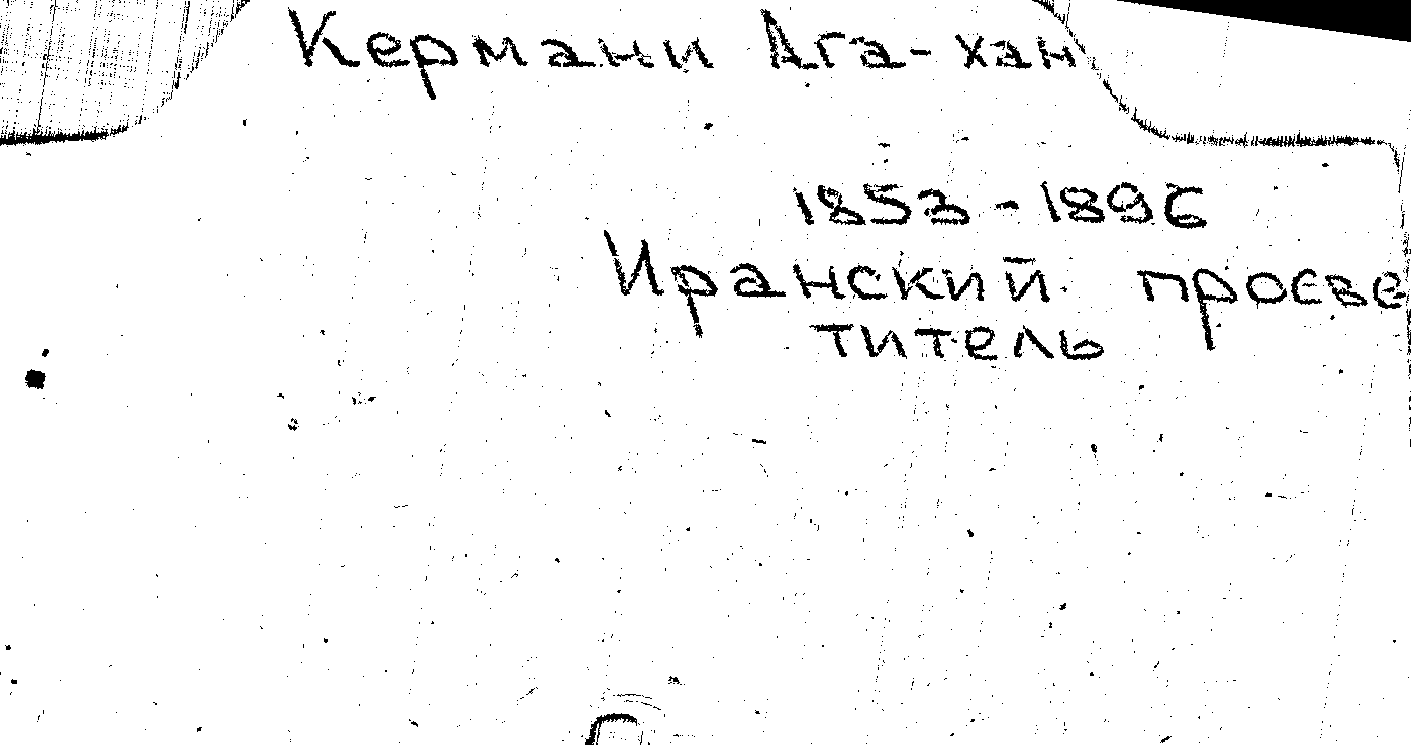 Кермани Ага-хан
1853-1896
Иранский просве
титель